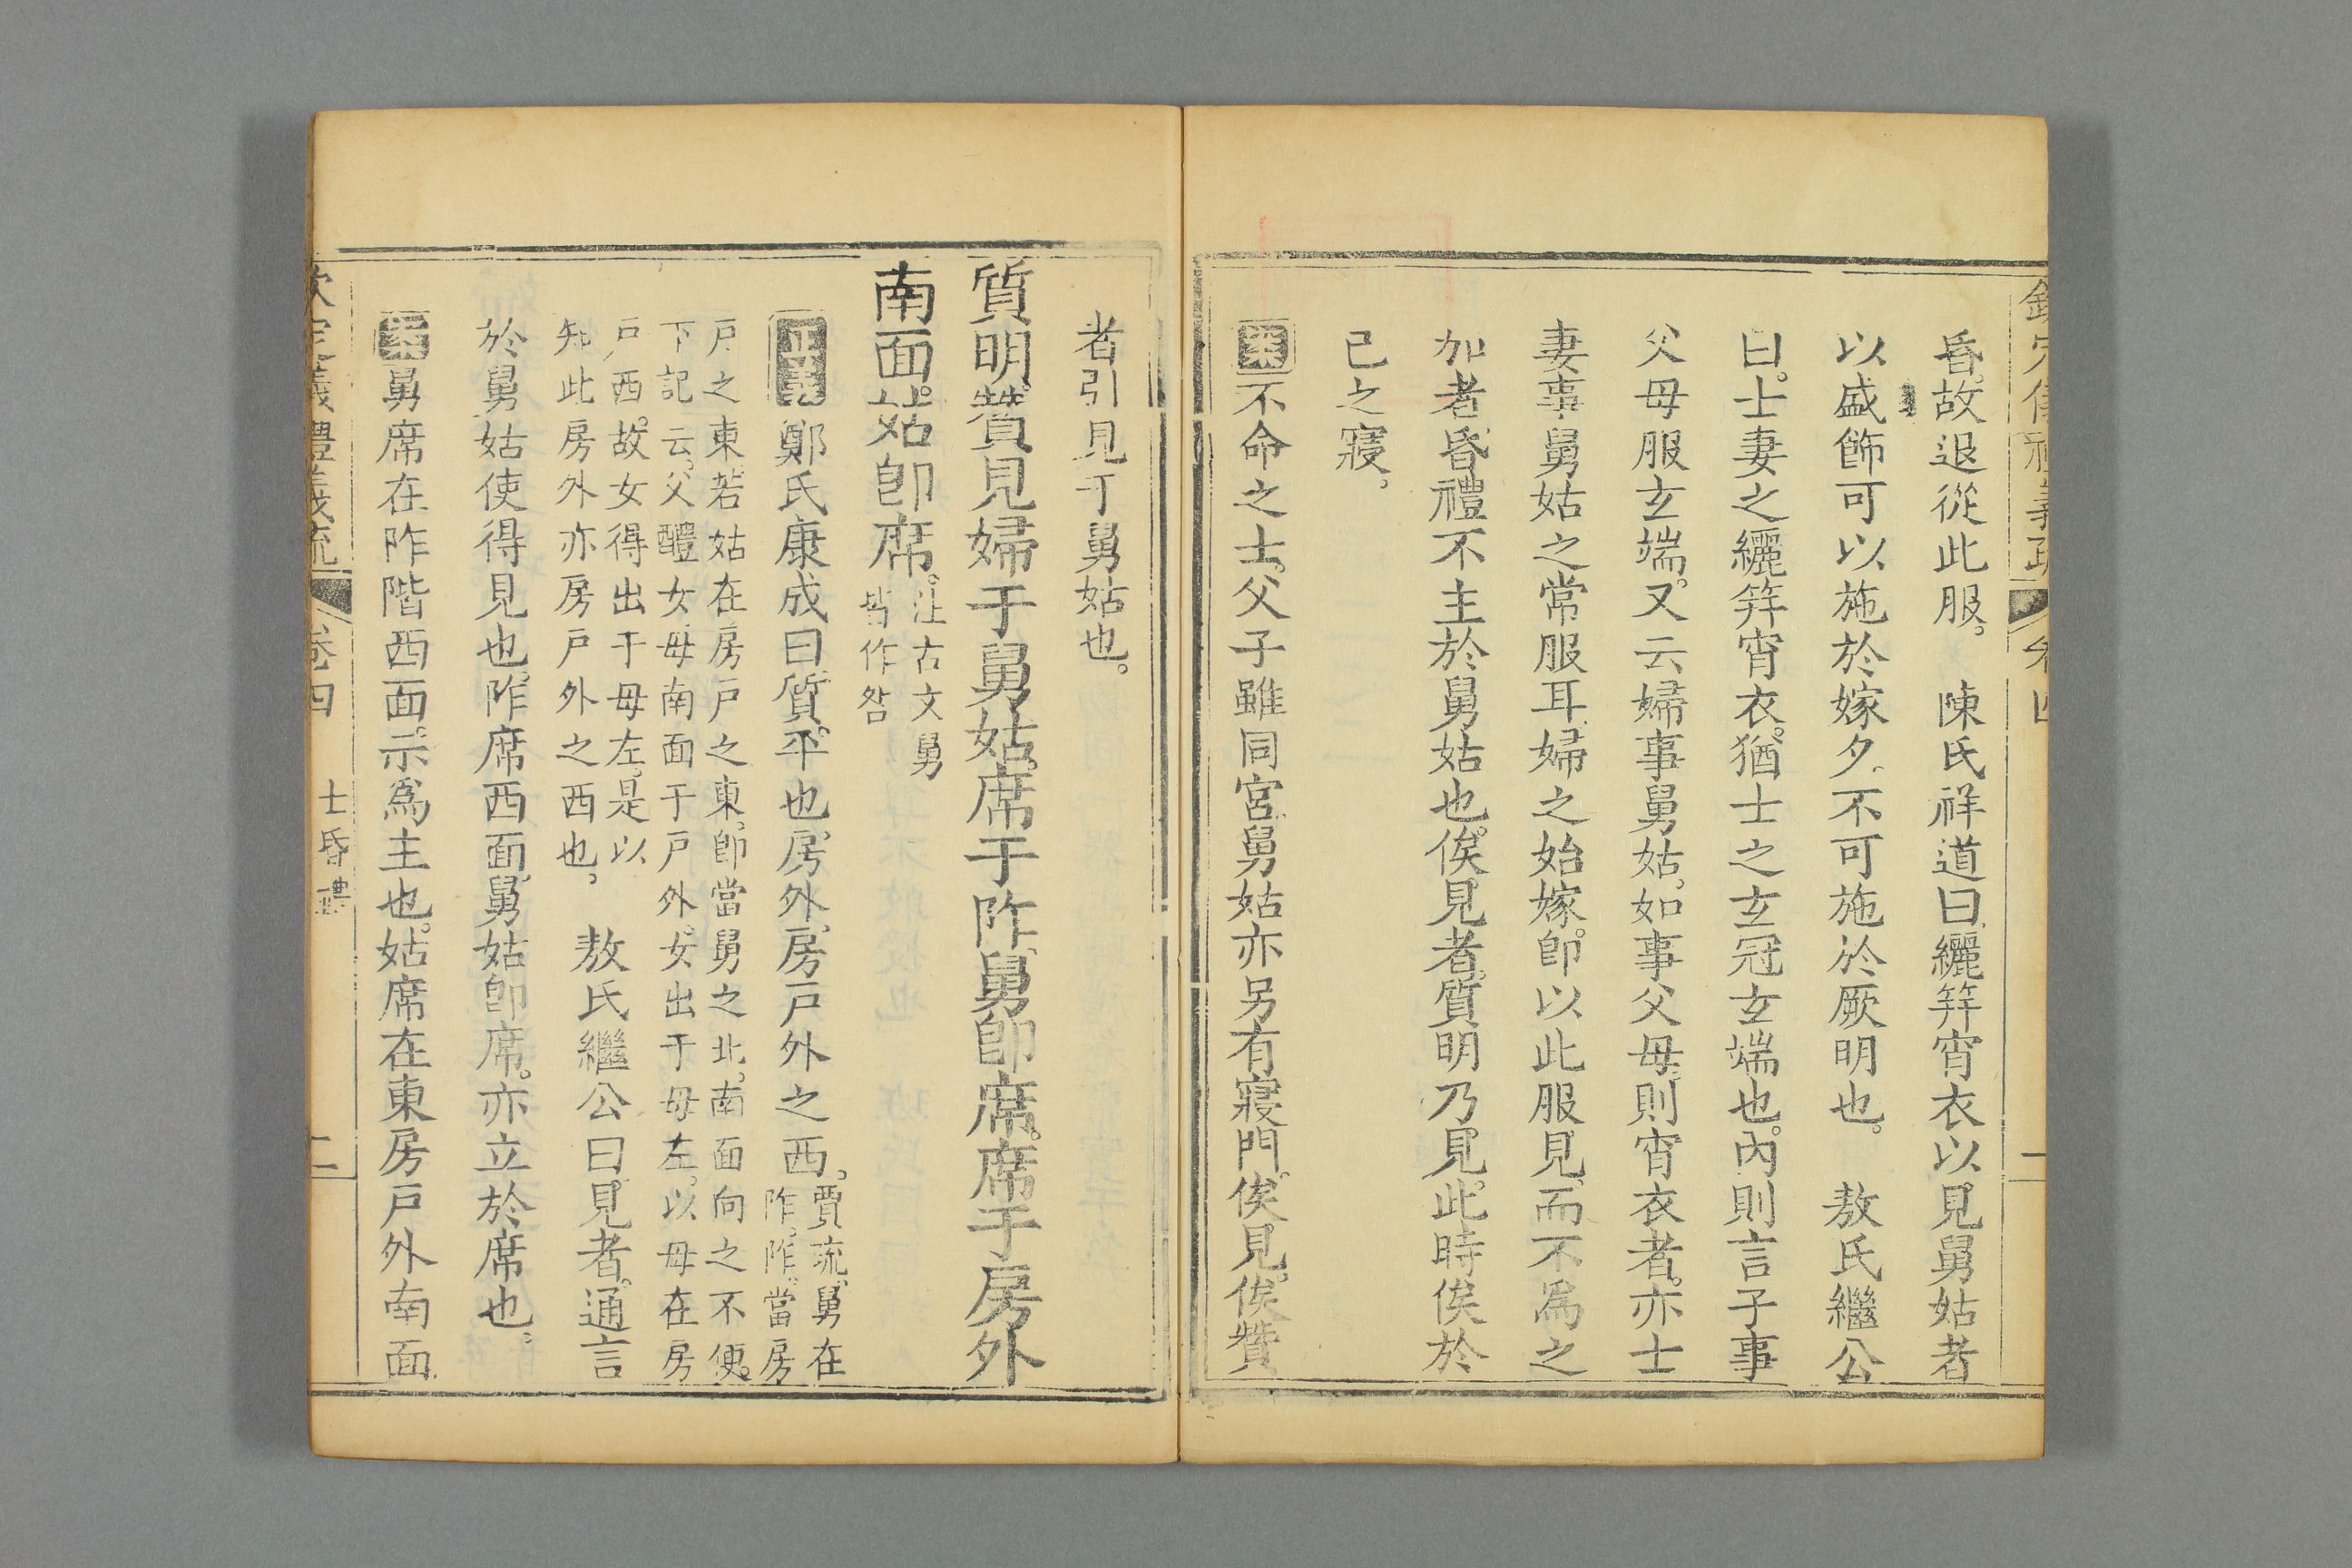 昏。故退從此服。　陳氏祥道曰。纚笄宵衣以見舅姑者
以盛飾可以施於嫁夕。不可施於厥明也。　敖氏繼公
曰。士妻之纚笄宵衣。猶士之玄冠玄端也。內則言子事
父母服玄端。又云婦事舅姑。如事父母。則宵衣者。亦士
妻事舅姑之常服耳。婦之始嫁。卽以此服見。而不爲之
加者。昏禮不主於舅姑也。俟。見者。質明乃見。此時俟於
已之寢。
案不命之士。父子雖同宮。舅姑亦另有寢門。俟見。俟贊
者引見于舅姑也。
質明。贊見婦于舅姑。席于阼。舅卽席。席于房外
南面。姑卽席。注古文舅
皆作咎
正義鄭氏康成曰。質。平也。房外。房戸外之西。賈疏。舅在
阼。阼。當房
戸之東。若姑在房戸之東。卽當舅之北。南面向之不便。
下記云。父醴女。母南面于戸外。女出于母左。以母在房
戸西。故女得出于母左。是以
知此房外亦房戸外之西也。　敖氏繼公曰。見者。通言
於舅姑使得見也。阼席西面。舅姑卽席。亦立於席也。
案舅席在阼階西面。示爲主也。姑席在東房戸外南面。
欽定儀禮義疏　卷四　士昏禮　二